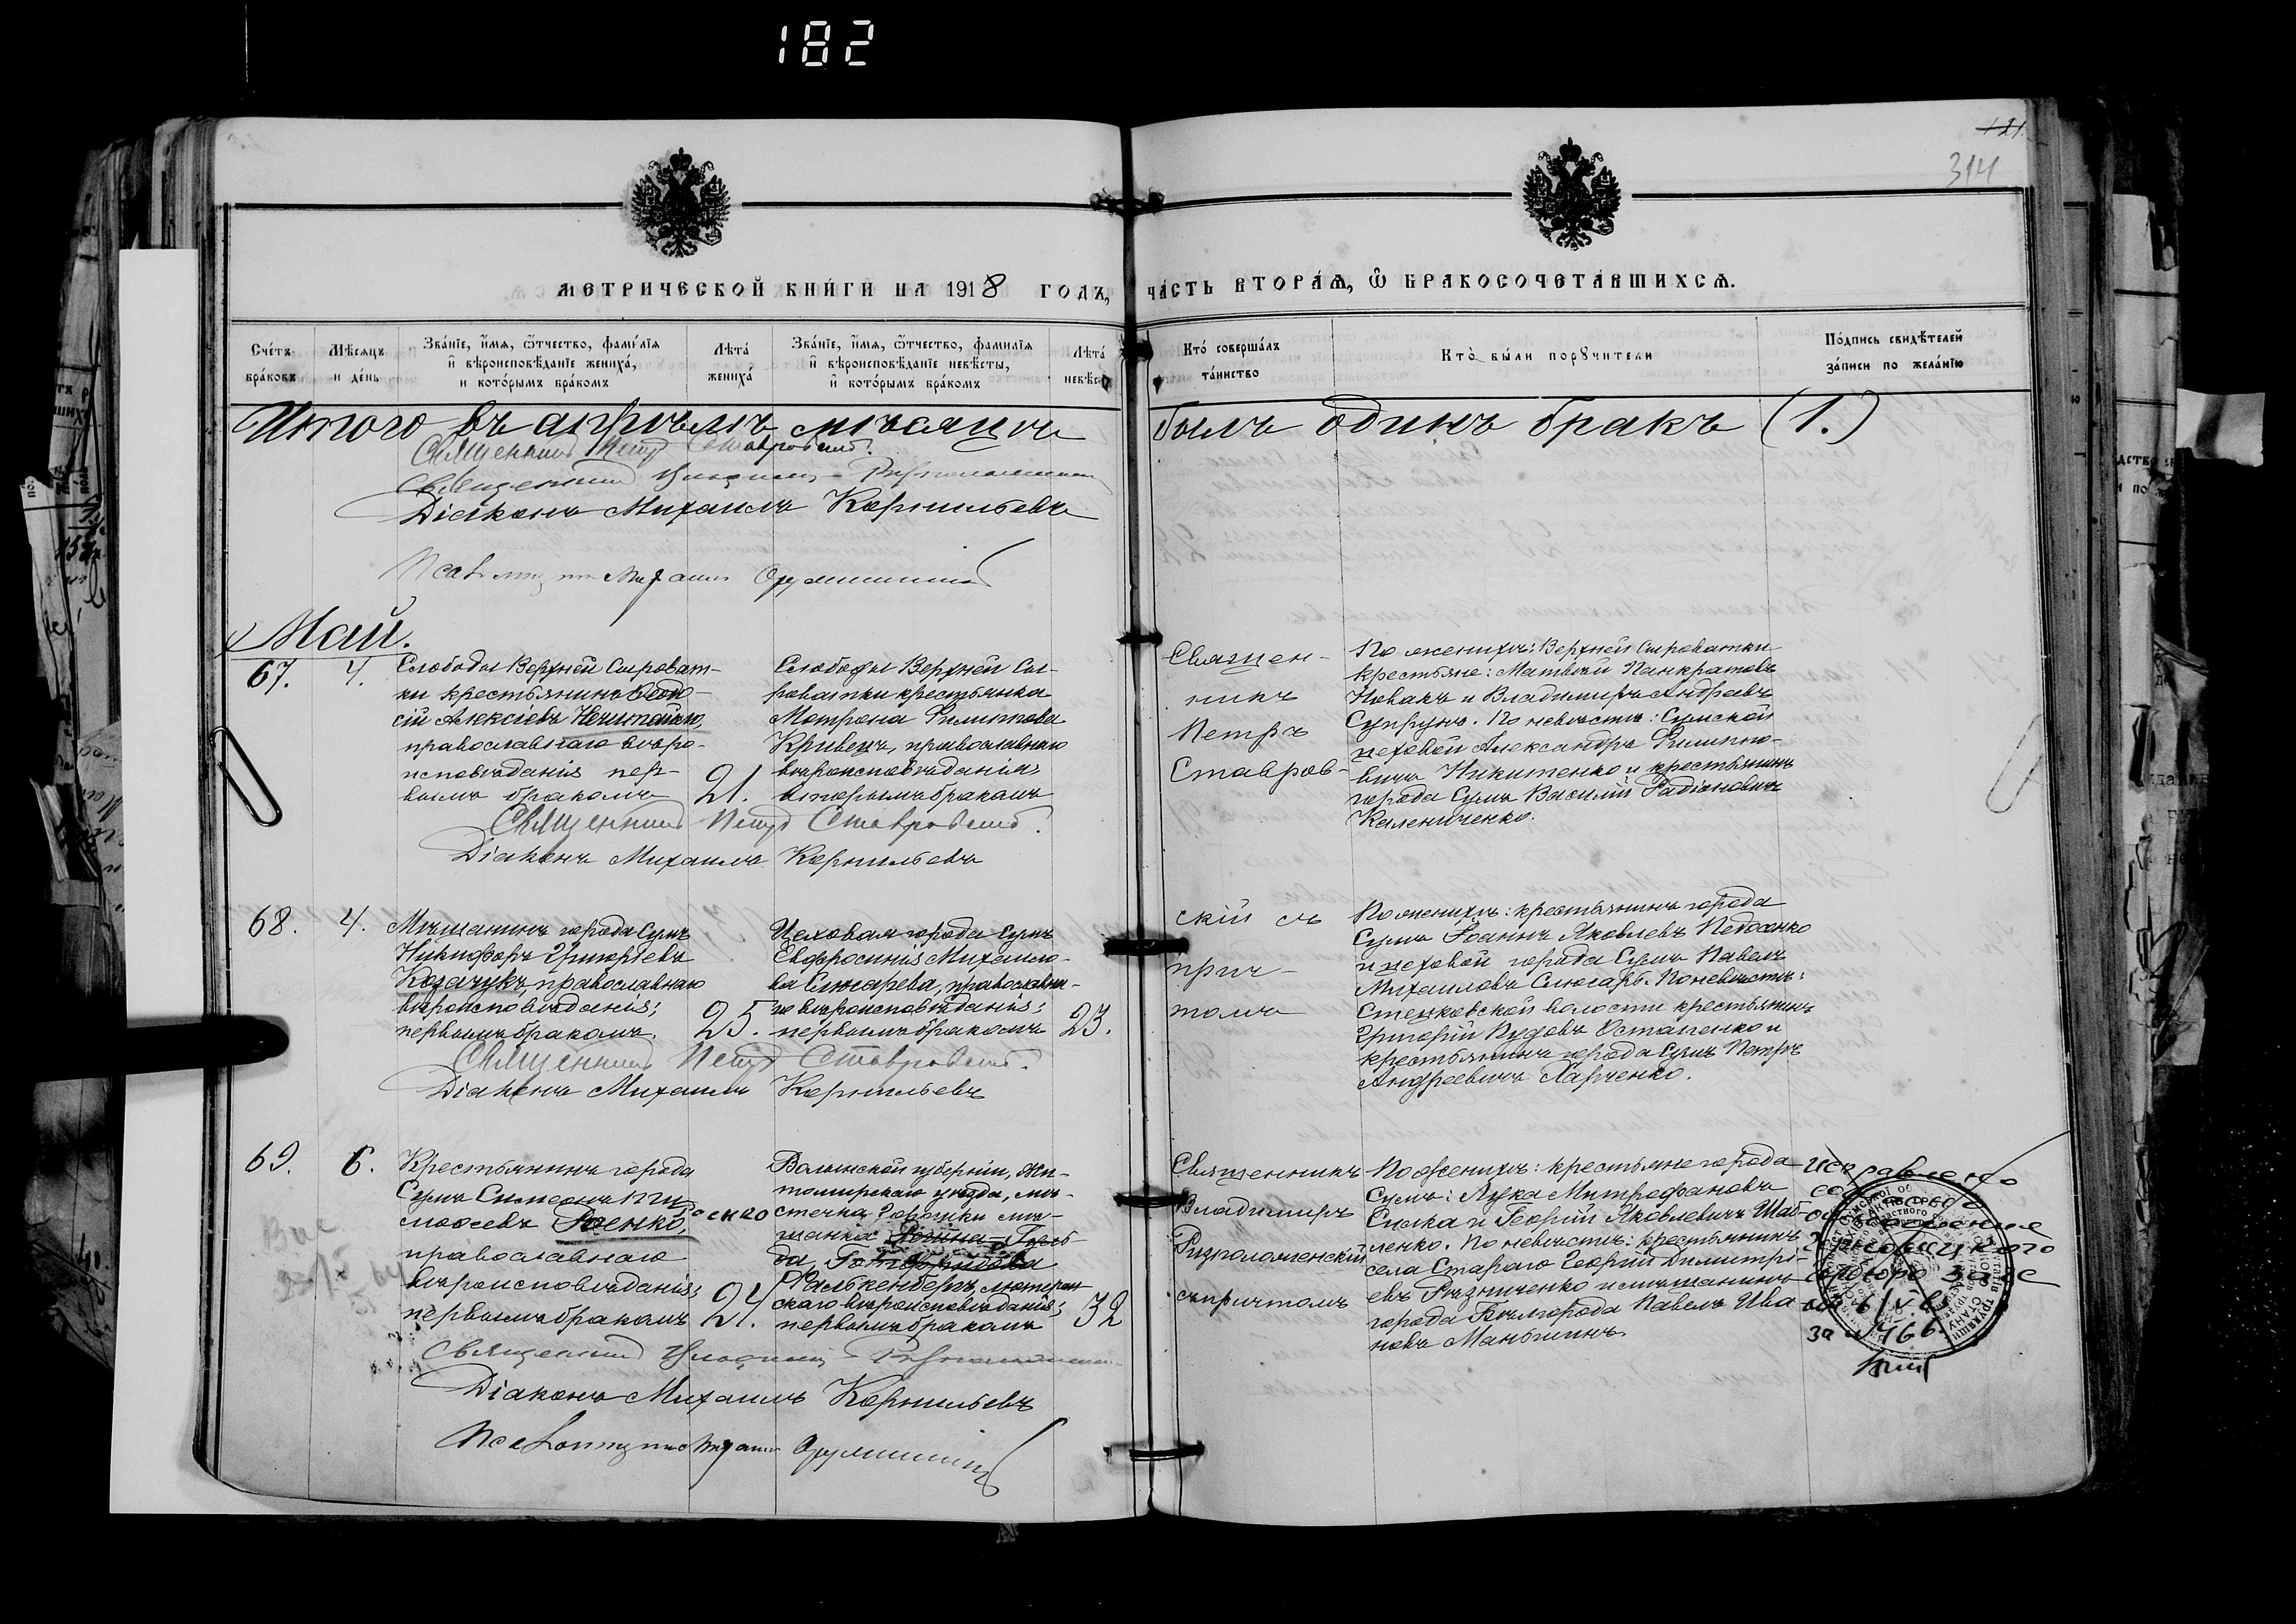 182
121.
314
МЕТРИЧЕСКОЙ КНИГИ НА 1918 ГОДЪ, ЧАСТЬ ВТОРАЯ, Ѡ БРАКОСОЧЕТАВШИХСЯ.
Счетъ браковъ
Мѣсяцъ и день
Званіе, имя, ѿчество, фамилія и вѣроисповѣданіе жениха, и которымъ бракомъ
Лѣта жениха
Званіе, имя, ѿчество, фамилія и вѣроисповѣданіе невѣсты, и которымъ бракомъ
Лѣта невѣсты
Кто совершалъ таинство
Кто были поручители
Подпись свидѣтелей записи по желанію
Итого въ апрѣлѣ мѣсяцѣ былъ одинъ бракъ (1.)
Священникъ Петръ Ставровскій.
Священникъ Владиміръ Ризположенскій
Діаконъ Михаилъ Корнильевъ
Псаломщикъ Михаилъ
Май.
67. 4.
Слободы Верхней Сыроват-
ки крестьянинъ Ѳеодо-
сій Алексіевъ Нечипайло
православнаго вѣро-
исповѣданія пер-
вымъ бракомъ
21.
Слободы Верхней Сы-
роватки крестьянка
Матрона Филиппова
Кривецъ, православнаго
вѣроисповѣданія,
вторымъ бракомъ
Священ-
никъ
Петръ
Ставров-
По женихѣ: Верхней Сыроватки
крестьяне: Матвѣй Панкратовъ
Новакъ и Владимиръ Андреевъ
Супрунъ. По невѣстѣ: Сумской
цеховой Александръ Филиппо-
вичъ Никитенко и крестьянинъ
города Сумъ Василій Радіоновичъ
Калениченко.
Священникъ Петръ Ставровскій.
Діаконъ Михаилъ Корнильевъ
68. 4.
Мѣщанинъ города Сумъ
Никифоръ Григорьевъ
Козачукъ, православнаго
вѣроисповѣданія;
первымъ бракомъ.
25.
Цеховая города Сумъ
Евфросинія Михаило-
ва Слюсарева, православна-
го вѣроисповѣданія;
первымъ бракомъ
23.
скій съ
прич-
томъ
По женихѣ: крестьянинъ города
Сумъ Іоаннъ Яковлевъ
и цеховой города Сумъ Павелъ
Михаиловъ Слюсарь. По невѣстѣ:
Стецковской волости крестьянинъ
Григорій Пудовъ Остапенко и
крестьянинъ города Сумъ Петръ
Андреевичъ Харченко.
Священникъ Петръ Ставровскій.
Діаконъ Михаилъ Корнильевъ
69. 6.
Крестьянинъ города
Сумъ Симеонъ Ти-
моѳеевъ
православнаго
вѣроисповѣданія;
первымъ бракомъ
24.
Волынской губерніи, Жи-
томирскаго уѣзда, мѣ-
стечка Горошки мѣ-
щанка
Фалькенбергъ, лютеран
скаго вѣроисповѣданія;
первымъ бракомъ
32
Священникъ
Владимиръ
Ризположенскій
съ причтомъ
По женихѣ: крестьяне города
Сумъ: Лука Митрофановъ
и Георгій Яковлевичъ Шаб-
ленко. По невѣстѣ: крестьянинъ
села Стараго Георгій Димитрі-
евъ Рѣзниченко и мѣщанинъ
города Бѣлгорода Павелъ Ива
новъ Маньшинъ.
исправлено
за № 466.
Священникъ Владиміръ Ризположенскій
Діаконъ Михаилъ Корнильевъ
Псаломщикъ Михаилъ